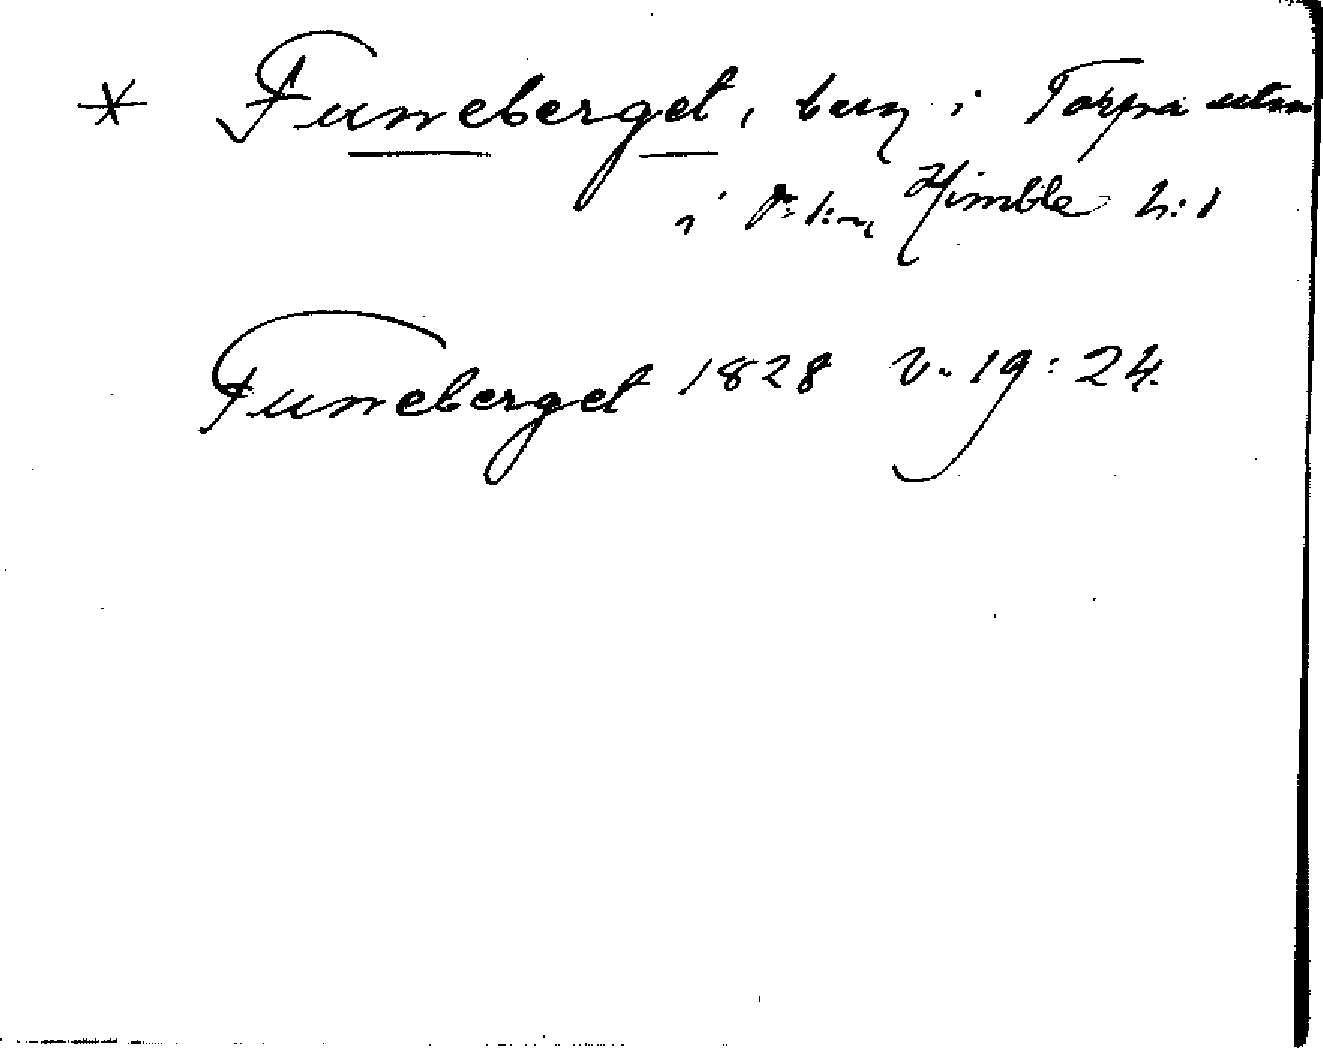 * Funeberget, berg i Torpa utm
i Himble h:d
Funeberget 1828 v. 19:24.